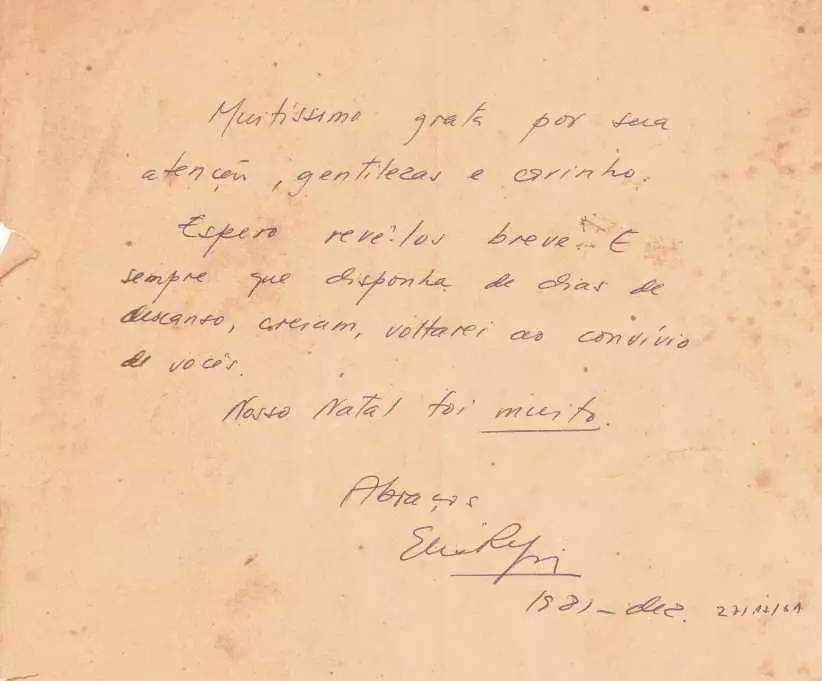 Muitíssimo grata por sua
atenção, gentilezas e carinho.
Espero revê-los breve. E
sempre que disponha de dias de
descanso, creiam, voltarei ao convívio
de vocês.
Nosso Natal foi muito.
Abraços
Elis Regi
1981 - dez. 27/12/81